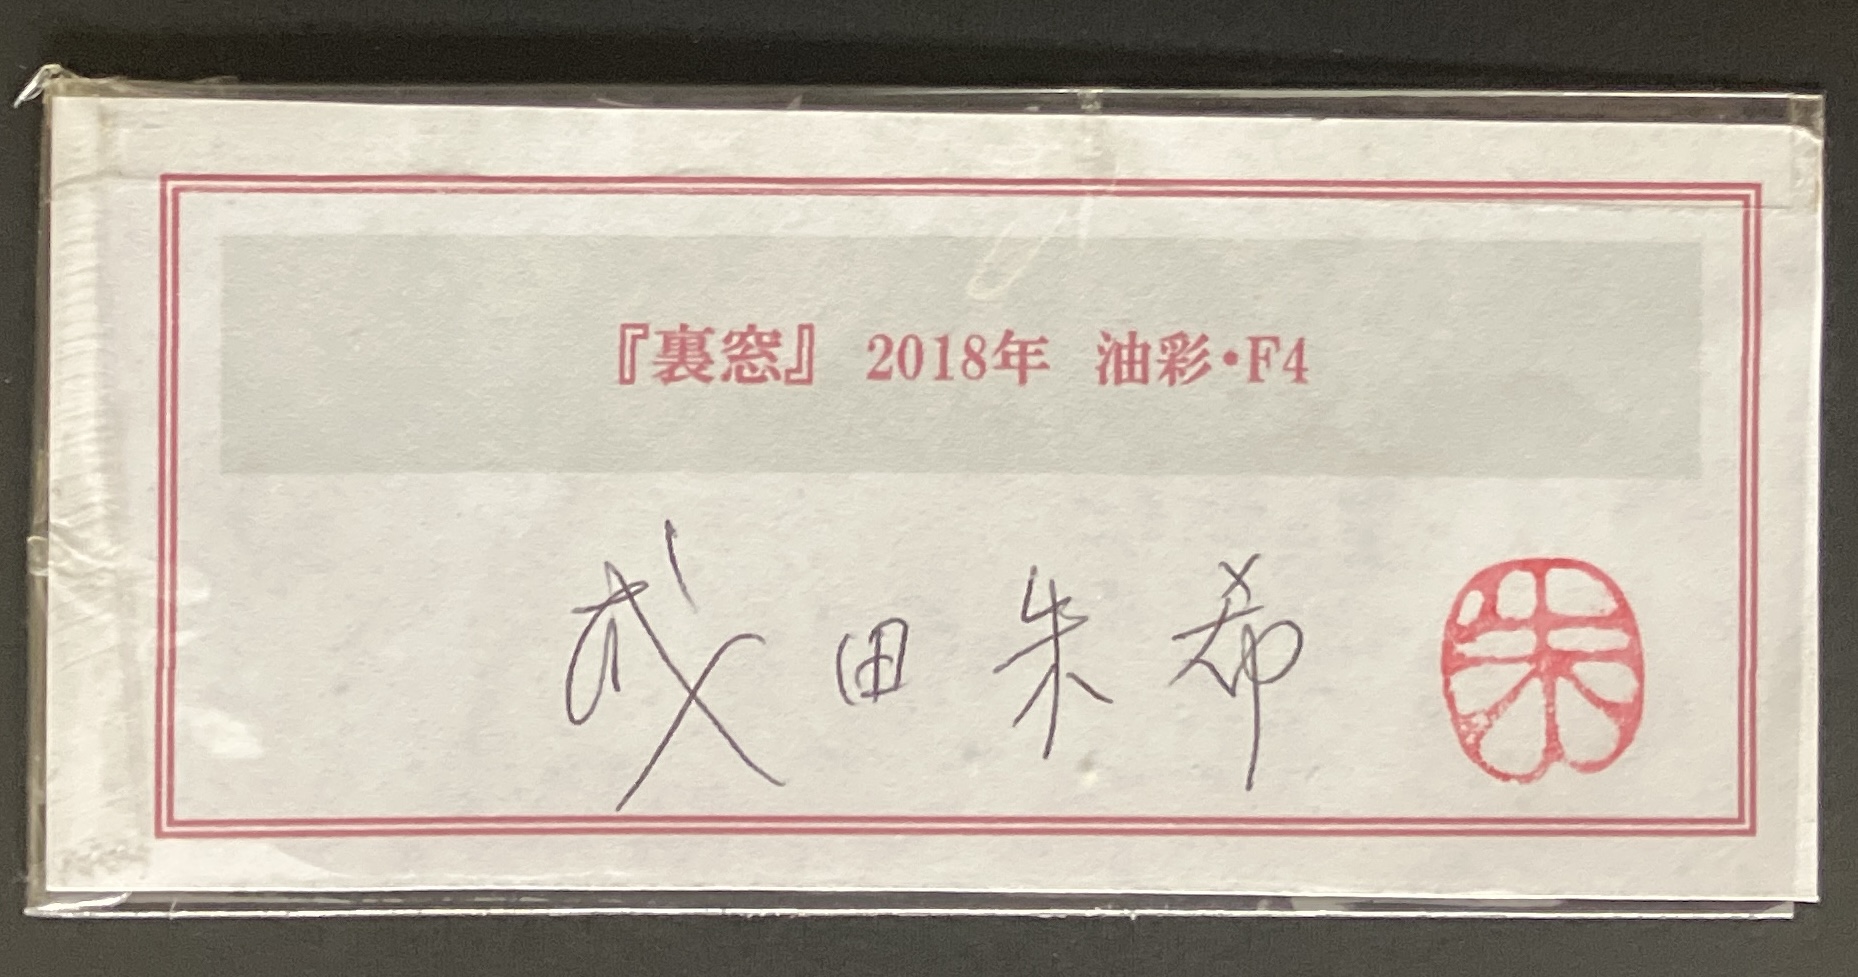 『裏窓』 2018年 油彩・F4
成田朱希
朱